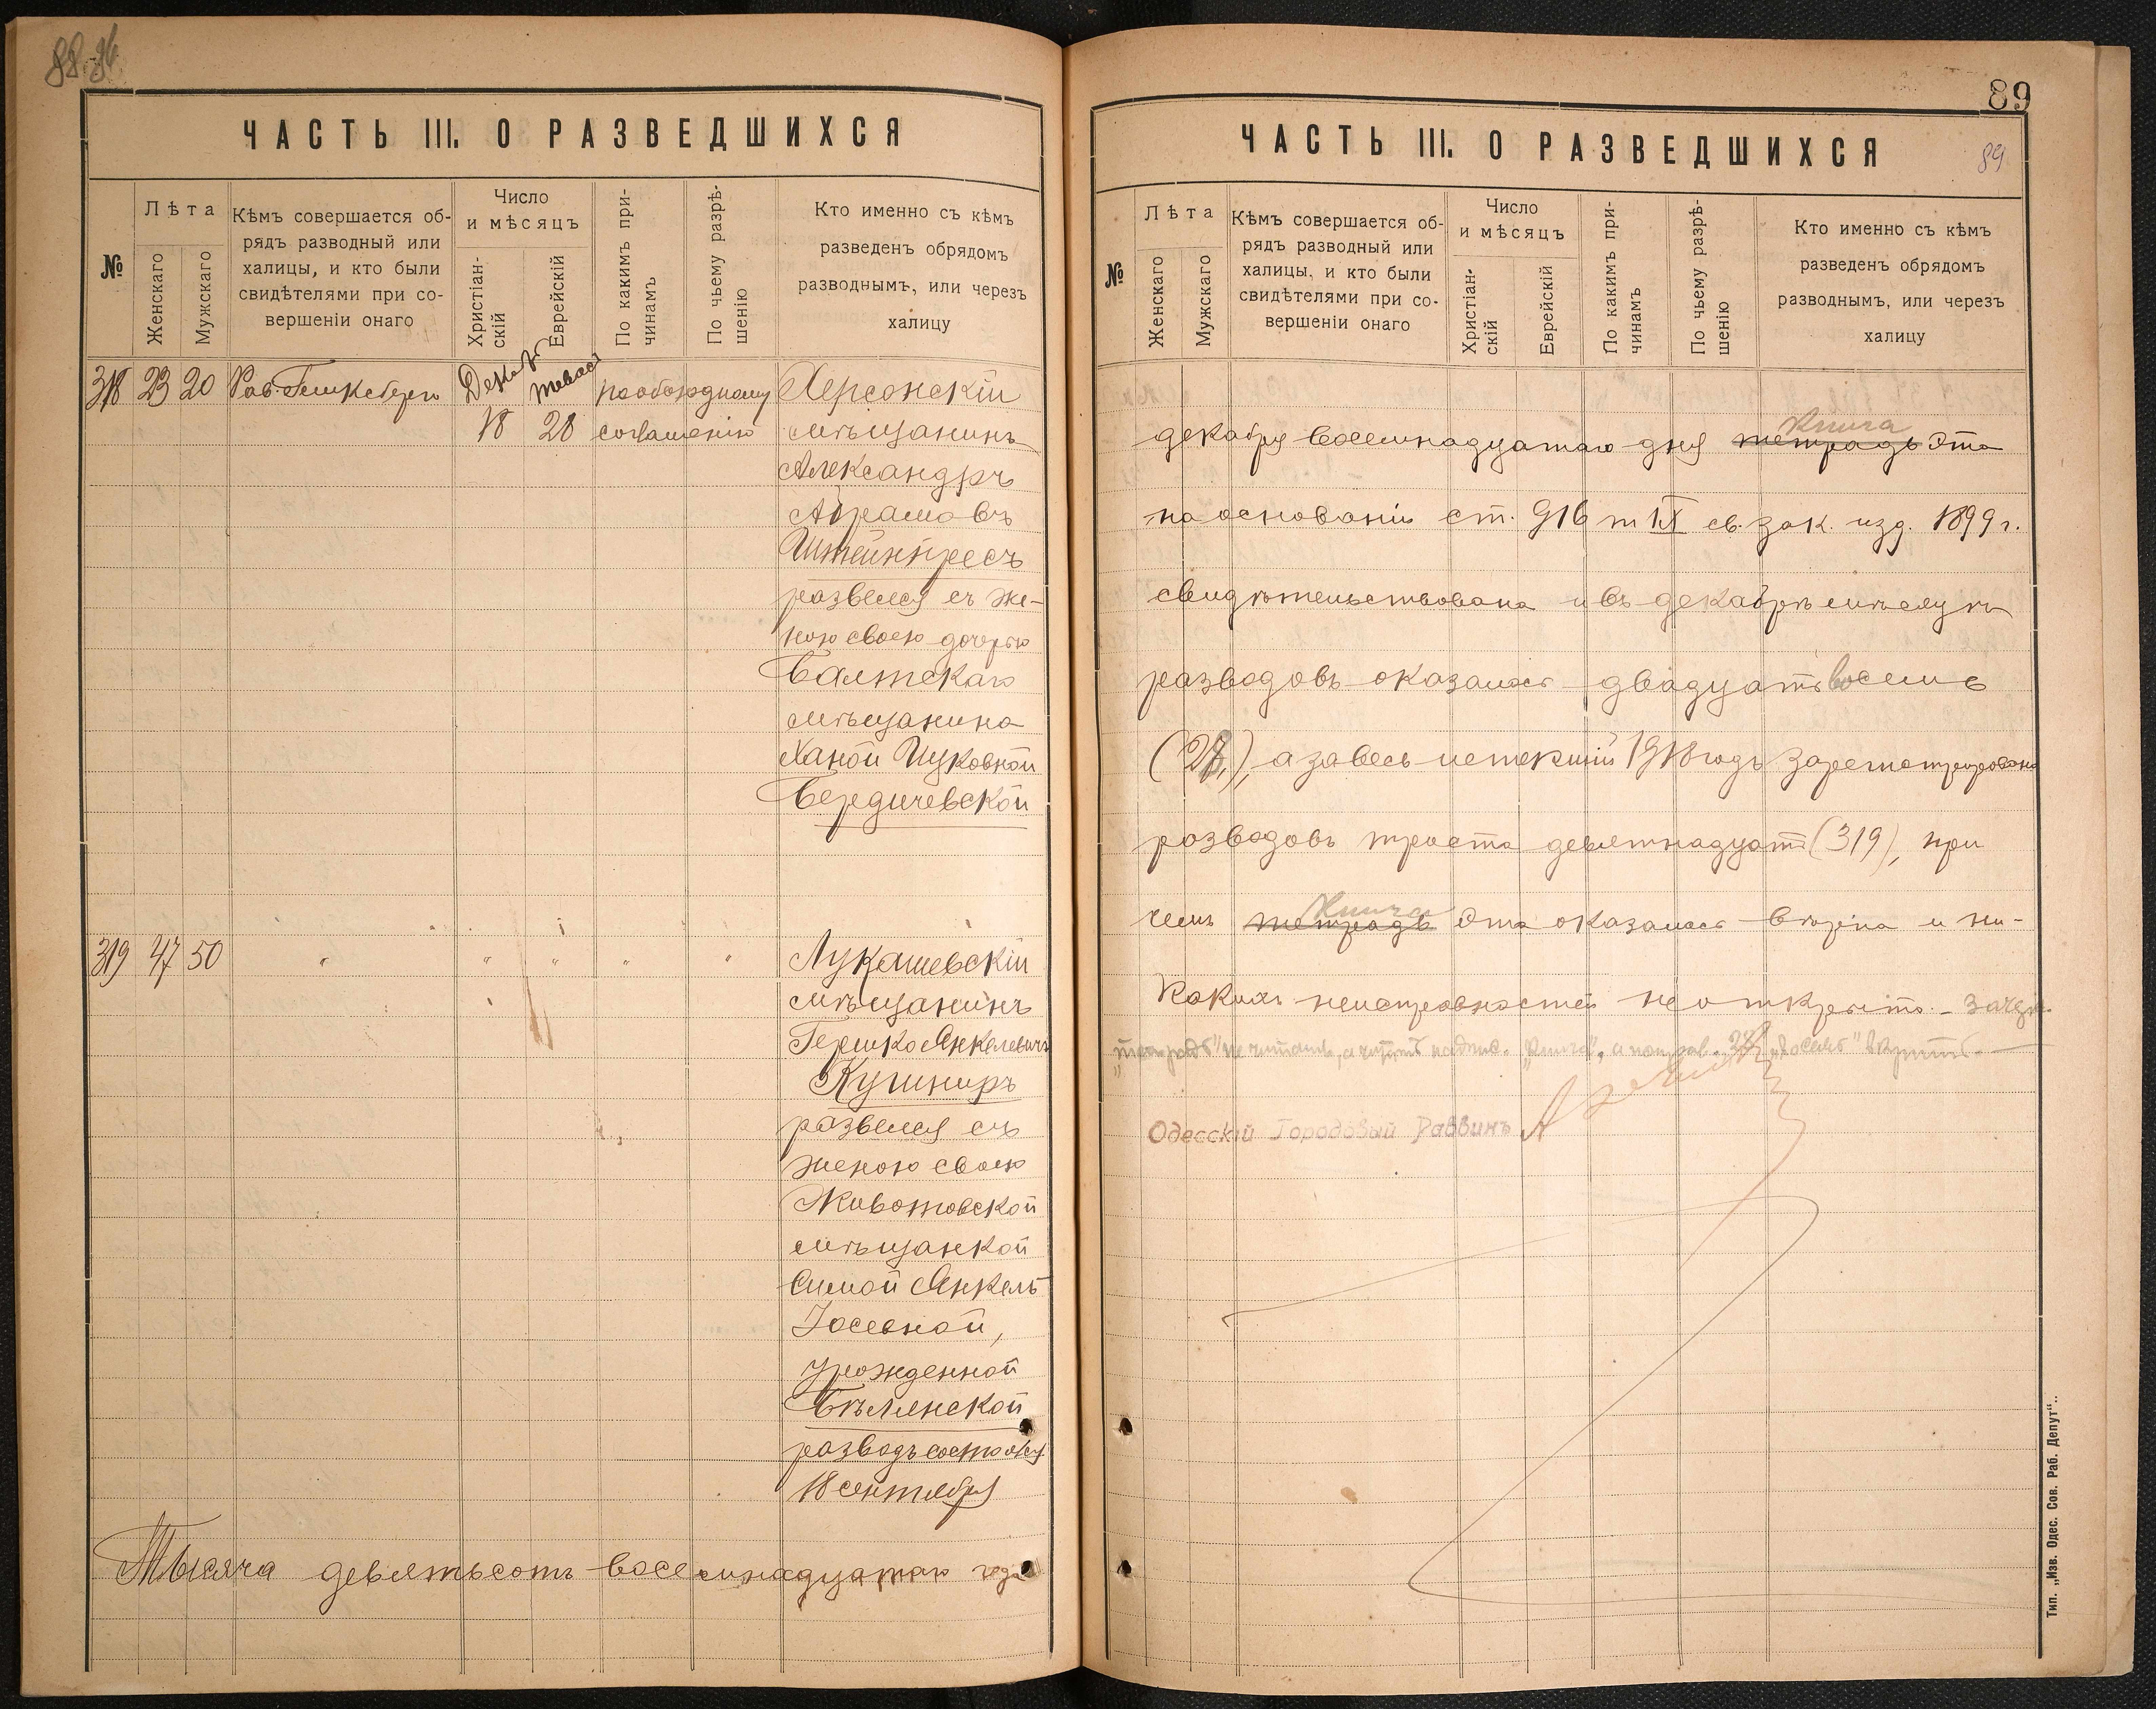 88
ЧАСТЬ III. О РАЗВЕДШИХСЯ
№
Лѣта
Женскаго
Мужскаго
Кѣмъ совершается об-
рядъ разводный или
халицы, и кто были
свидѣтелями при со-
вершеніи онаго
Число
и мѣсяцъ
Христіан-
скій
Еврейскій
По какимъ при-
чинамъ
По чьему разрѣ-
шенію
Кто именно съ кѣмъ
разведенъ обрядомъ
разводнымъ, или черезъ
халицу
318 23 20 Рав. Декаб. тевася по обоюдному Херсонскій
18 28 согlашенію мѣщанинъ
Александръ
Абрамовъ
Штейнпресъ
развелся съ же-
ною своею дочерью
Балтскаго
мѣщанина
Ханой Ицковной
Бердичевской
319 47 50 " " " " " Лукашевскій
мѣщанинъ
Гершко Янкелевичъ
Кушниръ
развелся съ
женою своею
Животовской
мѣщанкой
Симой Янкель
Іосевной,
урожденной
Бѣлинской
разводъ состоялся
18 сентября
Тысяча девятьсотъ восемнадцатаго года
89
ЧАСТЬ III. О РАЗВЕДШИХСЯ
89
№
Лѣта
Женскаго
Мужскаго
Кѣмъ совершается об-
рядъ разводный или
халицы, и кто были
свидѣтелями при со-
вершеніи онаго
Число
и мѣсяцъ
Христіан-
скій
Еврейскій
По какимъ при-
чинамъ
По чьему разрѣ-
шенію
Кто именно съ кѣмъ
разведенъ обрядомъ
разводнымъ, или черезъ
халицу
книга
декабря восемнадцатаго дня тетрадь эта
на основаніи ст. 916 т IX св. зак. изд. 1899 г.
свидѣтельствована и въ декабрѣ мѣсяцѣ
разводовъ оказалось двадцать восемь
(28), а за весь истекшій 1918 годъ зарегистрировано
разводовъ триста девятнадцать (319), при
книга
чемъ тетрадь эта оказалась вѣрна и ни-
какихъ неисправностей не открыто. – Зачеркн.
„тетрадь" не читать, а читать надпис. „книга", а поправ. „28" и „восемь" вѣрить. –
Одесскій Городовый Раввинъ
Тип. „Изв. Одес. Сов. Раб. Депут"..